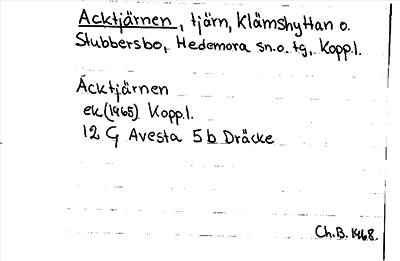 Acktjärnen, tjärn, Klämshyttan o.
Stubbersbo, Hedemora sn.o. tg, Kopp.l.
Äcktjärnen
ek(1965) Kopp.l.
12 G Avesta 5 b Dräcke
Ch.B. 1968.